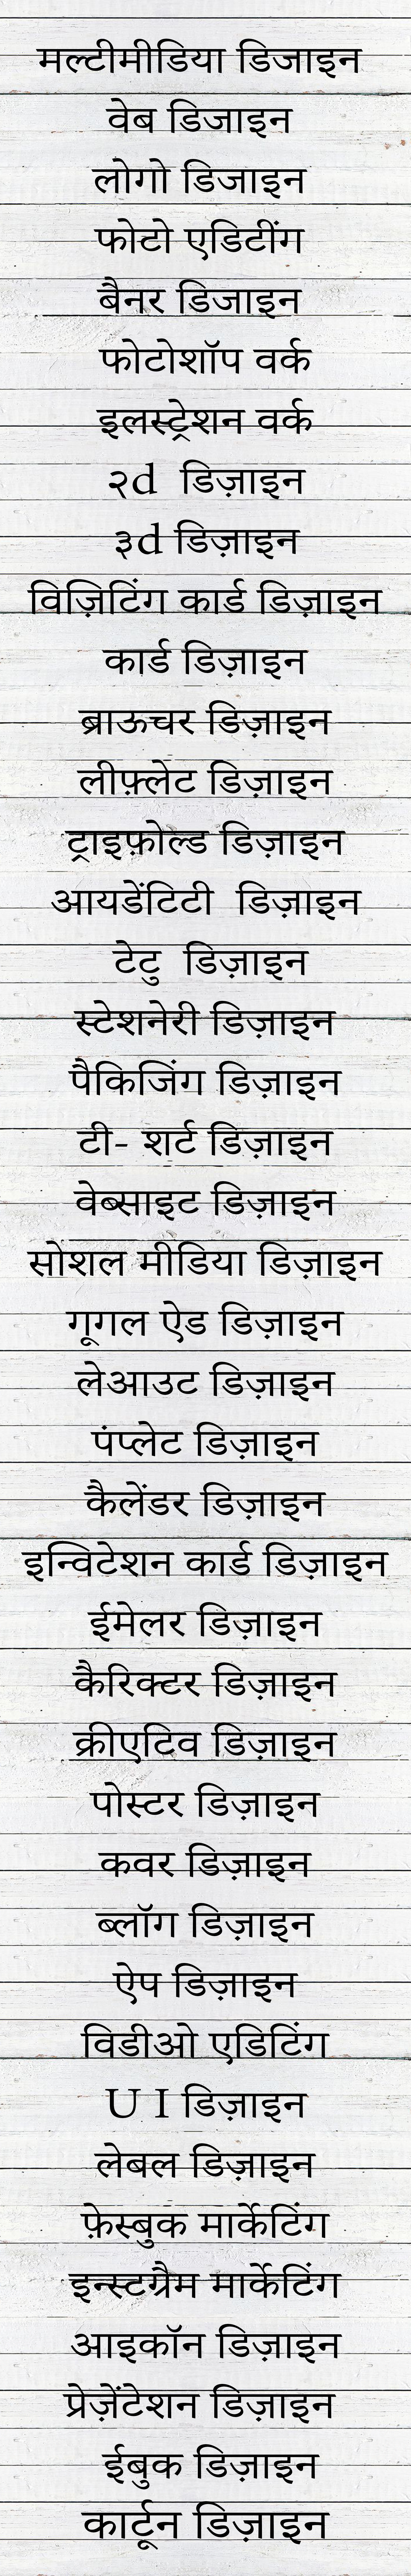 मल्टीमीडिया डिजाइन
वेब डिजाइन
लोगो डिजाइन
फोटो एडिटींग
बैनर डिजाइन
फोटोशॉप वर्क
इलस्ट्रेशन वर्क
२d डिज़ाइन
३d डिज़ाइन
विज़िटिंग कार्ड डिज़ाइन
कार्ड डिज़ाइन
ब्राऊचर डिज़ाइन
लीफ़्लेट डिज़ाइन
ट्राइफ़ोल्ड डिज़ाइन
आयडेंटिटी डिज़ाइन
टेटु डिज़ाइन
स्टेशनेरी डिज़ाइन
पैकिजिंग डिज़ाइन
टी- शर्ट डिज़ाइन
वेब्साइट डिज़ाइन
सोशल मीडिया डिज़ाइन
गूगल ऐड डिज़ाइन
लेआउट डिज़ाइन
पंप्लेट डिज़ाइन
कैलेंडर डिज़ाइन
इन्विटेशन कार्ड डिज़ाइन
ईमेलर डिज़ाइन
कैरिक्टर डिज़ाइन
क्रीएटिव डिज़ाइन
पोस्टर डिज़ाइन
कवर डिज़ाइन
ब्लॉग डिज़ाइन
ऐप डिज़ाइन
विडीओ एडिटिंग
U I डिज़ाइन
लेबल डिज़ाइन
फ़ेस्बुक मार्केटिंग
इन्स्टग्रैम मार्केटिंग
आइकॉन डिज़ाइन
प्रेज़ेंटेशन डिज़ाइन
ईबुक डिज़ाइन
कार्टून डिज़ाइन